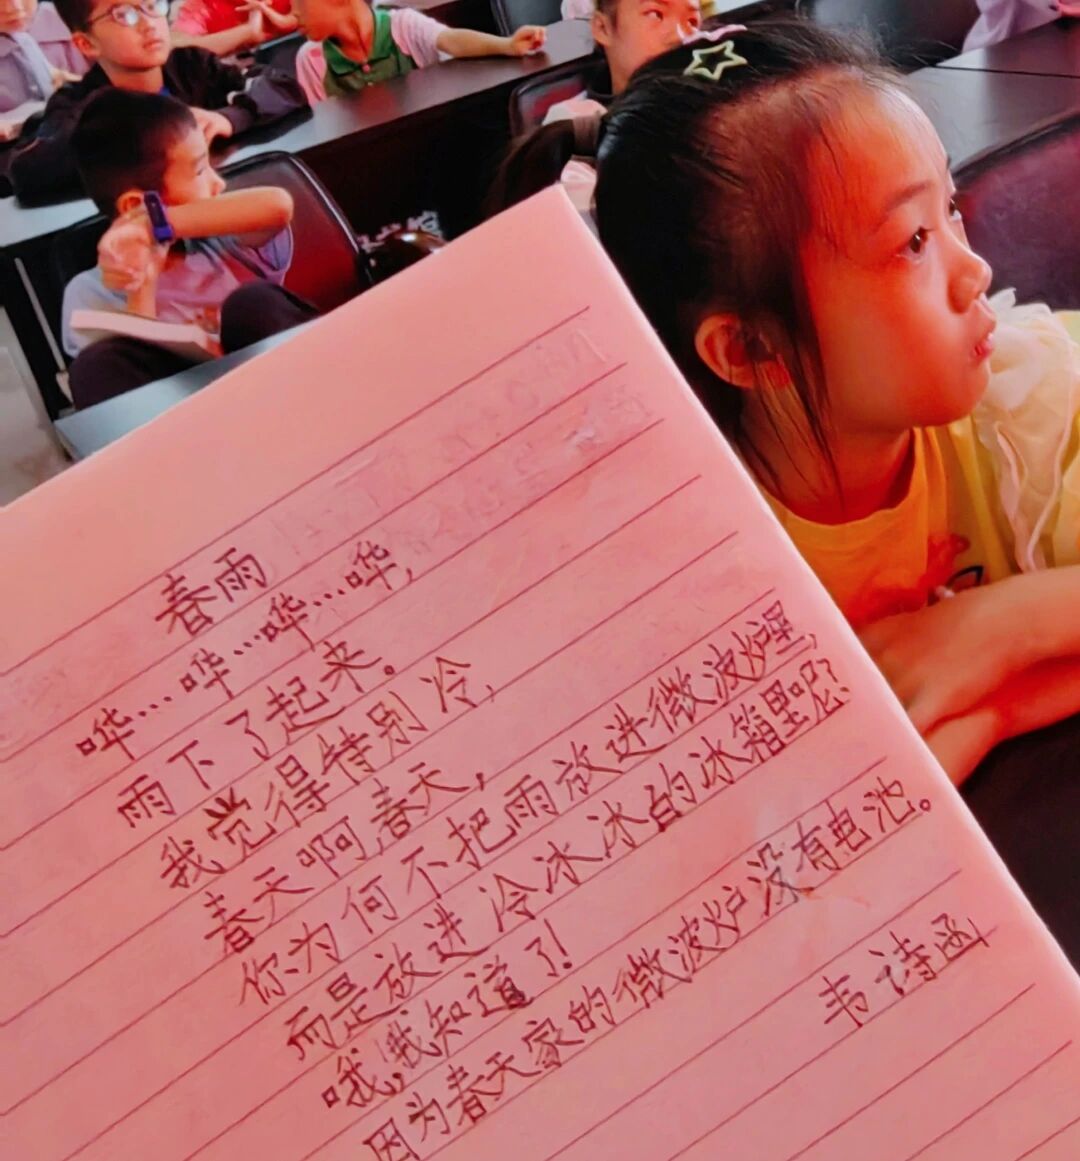 春雨
哗…哗…哗…哗,
雨下了起来。
我觉得特别冷,
春天啊,春天,
你为何不把雨放进微波炉里,
而是放进冷冰冰的冰箱里呢?
哦,我知道了!
因为春天家的微波炉没有电池。
韦诗函